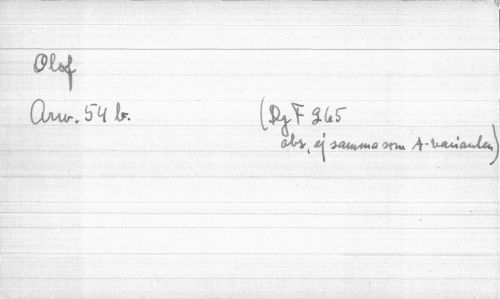 Olof
Arw. 54 b. (Dg F 265
obs, ej samma som A-varianten)